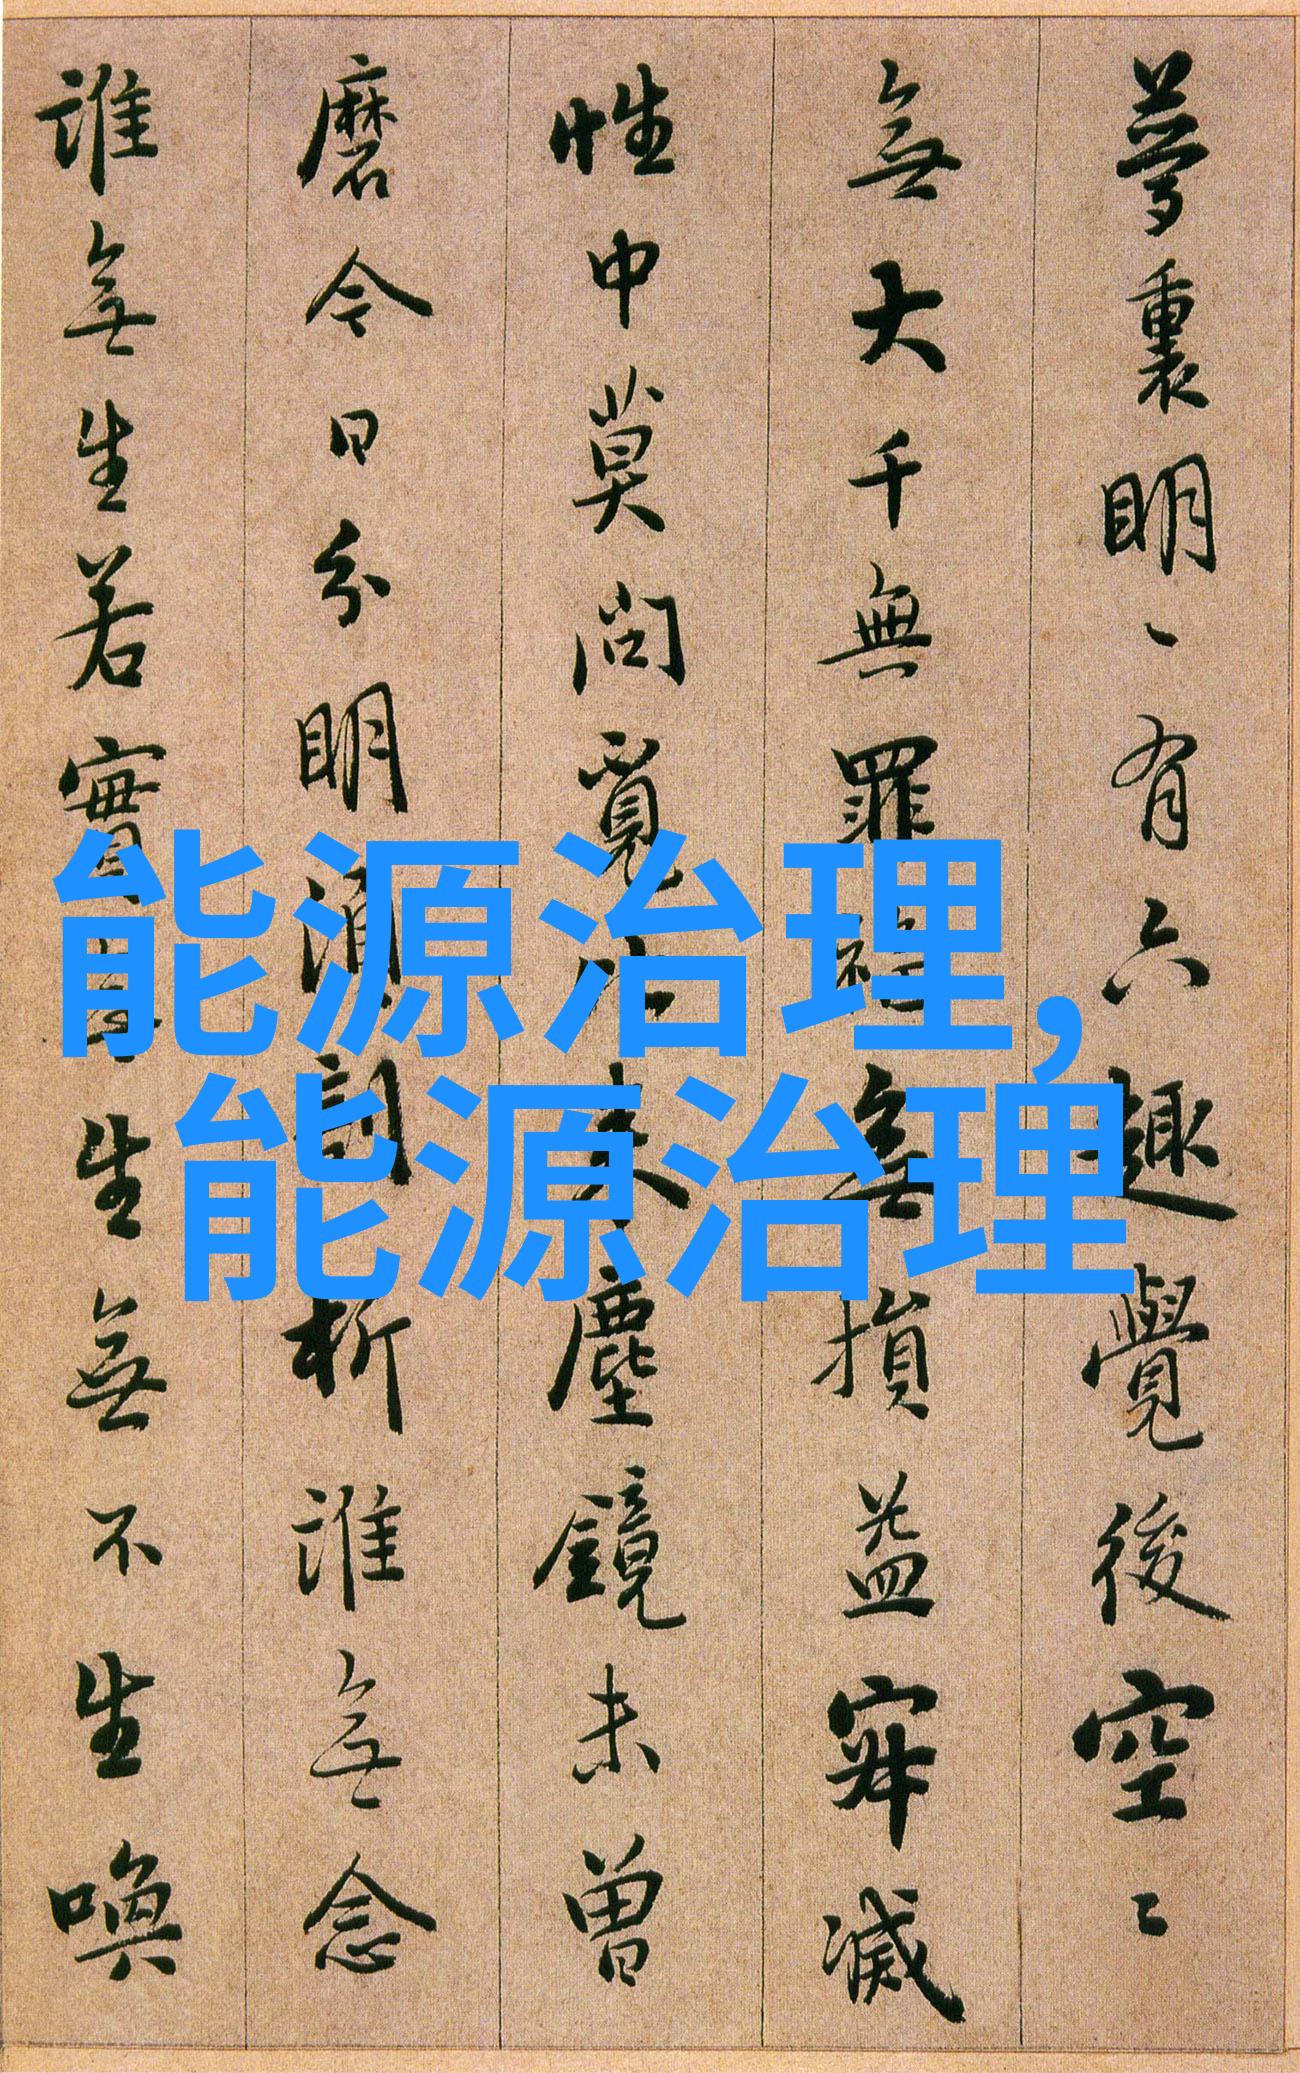 夢裏明〻有六趣覺後空〻
無大千無罪福無損益寂滅
性中莫問覓比來塵鏡未曾
磨今日分明須剖析誰無念
誰無生若實無生無不生喚
能源治理,
能源治理